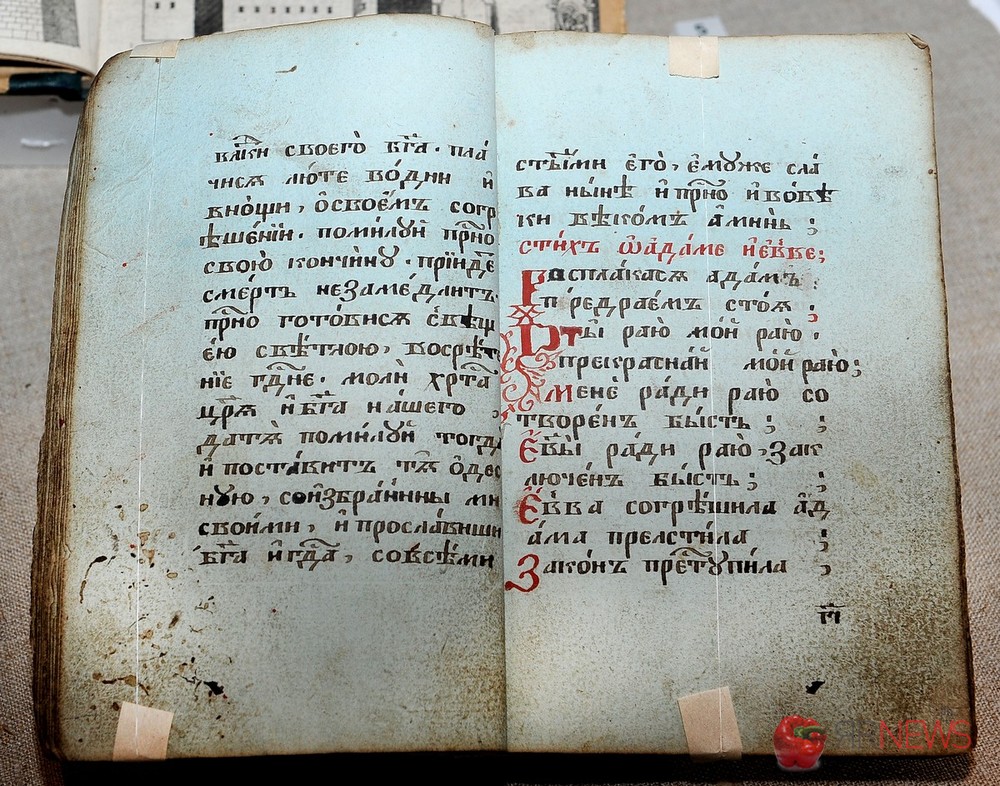 влⷣки своего̀ бг҃а. пла́
чися лю́те во́дни и҆
вно́щи, ѻ҆своѐмъ согр
ѣше́нїи. поми́лꙋй прⷭ҇но
свою̀ кончи́нꙋ. прїи́деⷮ
сме́рть незаме́длитъ.
прⷭ҇но гото́вися свѣщ
е́ю свѣ́тлою, восрѣ́т
нїе гдⷭ҇не. молѝ хрⷭ҇та
цр҃я и҆бг҃а на́шего,
дата̀ поми́лꙋй тогда
и҆ поста́витъ тѧ̀ ѻ҆дес
нꙋю, соизбра́нными ми
свои́ми, и҆ просла́вивши
бг҃а и҆гдⷭ҇а, совсѣ́ми
сты́ми є҆го̀, є҆мꙋ́же сла́
ва ны́нѣ и҆ прⷭ҇но и҆ во́вѣ
ки вѣко́мъ а҆ми́нь ;
сти́хъ ѡ҆а҆да́ме и҆є҆́ввѣ;
Расплакася ада́мъ :
п редрае́мъ стоя̀ ;
Ты̀ раю̀ мо́й раю̀ .
прекра́сный мо́й раю̀;
менѐ ра́ди раю̀ со
творе́нъ бы́сть ; ;
є҆́ввы ра́ди раю̀, зак
люче́нъ бы́сть; ;
Є҆́вва согрѣши́ла а҆д
а́ма прелсти́ла ;
Зако́нъ престꙋпи́ла ;
м҃
NEWS